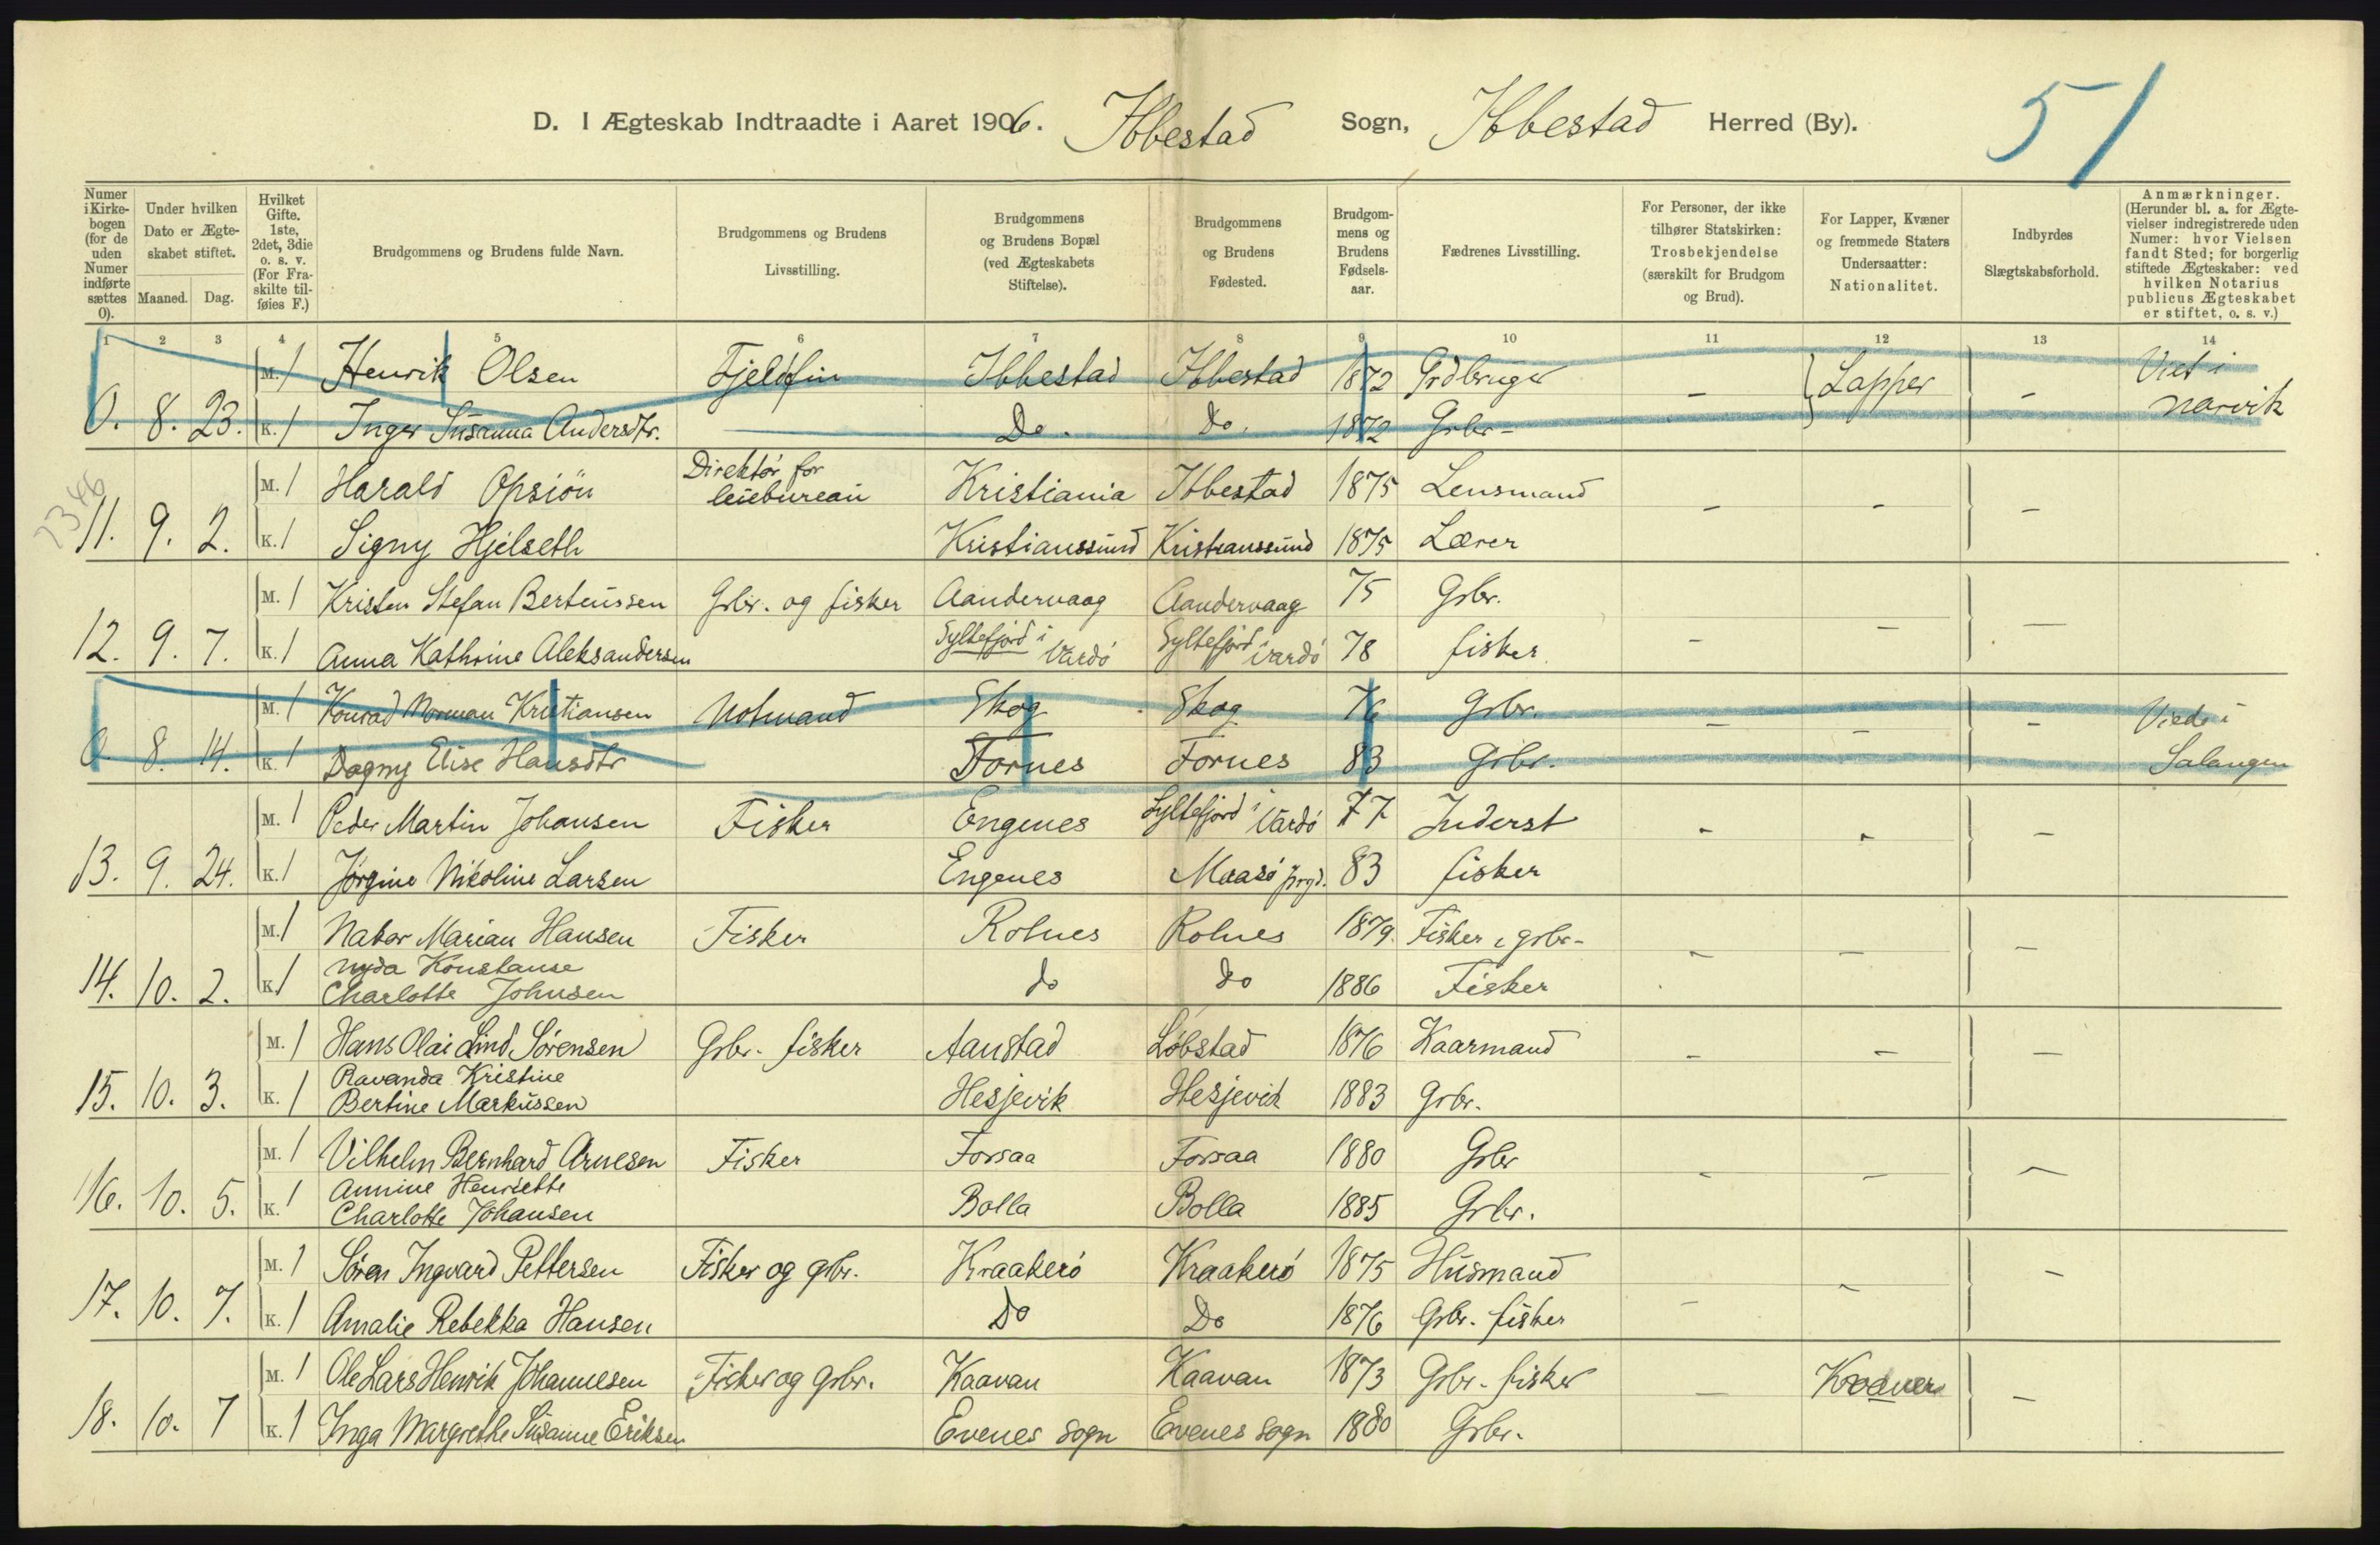 D. I Ægteskab Indtraadte i Aaret 1906. Ibbestad Sogn, Ibbestad Herred (By). 51
Numer i Kirkebogen (for de uden Numer indførte sættes 0). | Under hvilken Dato er Ægteskabet stiftet. Maaned. Dag. | Hvilket Gifte. 1ste, 2det, 3die o. s. v. (For Fraskilte tilføies F.) | Brudgommens og Brudens fulde Navn. | Brudgommens og Brudens Livsstilling. | Brudgommens og Brudens Bopæl (ved Ægteskabets Stiftelse). | Brudgommens og Brudens Fødested. | Brudgommens og Brudens Fødselsaar. | Fædrenes Livsstilling. | For Personer, der ikke tilhører Statskirken: Trosbekjendelse (særskilt for Brudgom og Brud). | For Lapper, Kvæner og fremmede Staters Undersaatter: Nationalitet. | Indbyrdes Slægtskabsforhold. | Anmærkninger. (Herunder bl. a. for Ægtevielser indregistrerede uden Numer: hvor Vielsen fandt Sted; for borgerlig stiftede Ægteskaber: ved hvilken Notarius publicus Ægteskabet er stiftet, o. s. v.)
1 2 3 4 5 6 7 8 9 10 11 12 13 14
M. 1 Henrik Olsen Fjeldfin Ibbestad Ibbestad 1872 Grdbruger Lapper - Viet i
0. 8. 23. K. 1 Inger Susanna Andersdtr. Do. Do. 1872 Grbr- - Narvik
M. 1 Harald Opsiön Direktør for leiebureau Kristiania Ibbestad 1875 Lensmand
11. 9. 2. K. 1 Signy Hjelseth Kristianssund Kristianssund 1875 Lærer - - -
M. 1 Kristen Stefan Berteussen Grbr. og fisker Aandervaag Aandervaag 75 Grbr.
12. 9. 7. K. 1 Anna Kathrine Aleksandersen Syltefjord i Vardø Syltefjord i Vardø 78 fisker - - -
M. 1 Konrad Norman Kristiansen Notmand Skog Skog 76 Grbr. - - - Viede i
0. 8. 14. K. 1 Dagny Elise Hansdtr Fornes Fornes 83 Grbr. Salangen
M. 1 Peder Martin Johansen Fisker Engenes Syltefjord i Vardø 77 Inderst - - -
13. 9. 24. K. 1 Jørgine Nikoline Larsen Engenes Maasø prgd. 83 fisker
M. 1 Nabor Marian Hansen Fisker Rolnes Rolnes 1879. Fisker & grbr-
14. 10. 2. K. 1 Konstanse Charlotte Johnsen do do 1886 Fisker - - -
M. 1 Hans Olai Lind Sørensen Grbr. fisker Aanstad Løbstad 1876 Kaarmand - - -
15. 10. 3. K. 1 Ravanda Kristine Bertine Markussen Hesjevik Hesjevik 1883 Grbr.
M. 1 Vilhelm Bernhard Arnesen Fisker Forsaa Forsaa 1880 Grbr - - -
16. 10. 5. K. 1 Annine Henriette Charlotte Johansen Bolla Bolla 1885 Grbr.
M. 1 Søren Ingvard Pettersen Fisker og grbr. Kraakerø Kraakerø 1875 Husmand - - -
17. 10. 7. K. 1 Amalie Rebekka Hansen Do Do 1876 Grbr. fisker
M. 1 Ole Lars Henrik Johannesen Fisker og grbr. Kaavan Kaavan 1873 Grbr. fisker - Kvæner -
18. 10. 7 K. 1 Inga Margrethe Susanne Eriksen Evenes sogn Evenes sogn 1880 Grbr.